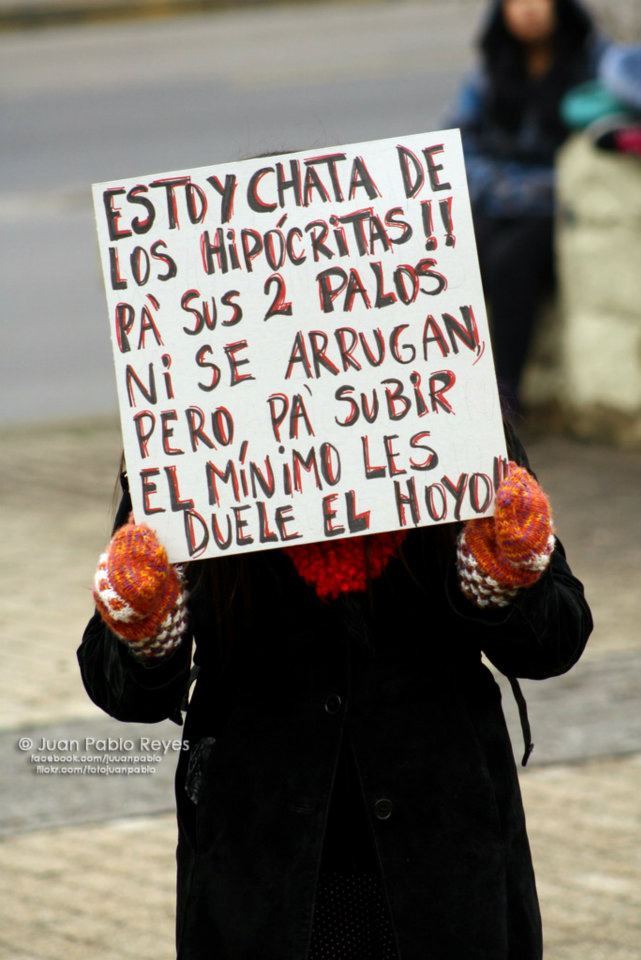 ESTOY CHATA DE
LOS HIPÓCRITAS!!
PA' SUS 2 PALOS
NI SE ARRUGAN,
PERO, PA' SUBIR
EL MÍNIMO LES
DUELE EL HOYO!!
© Juan Pablo Reyes
facebook.com/juuanpablo
flickr.com/fotojuanpablo